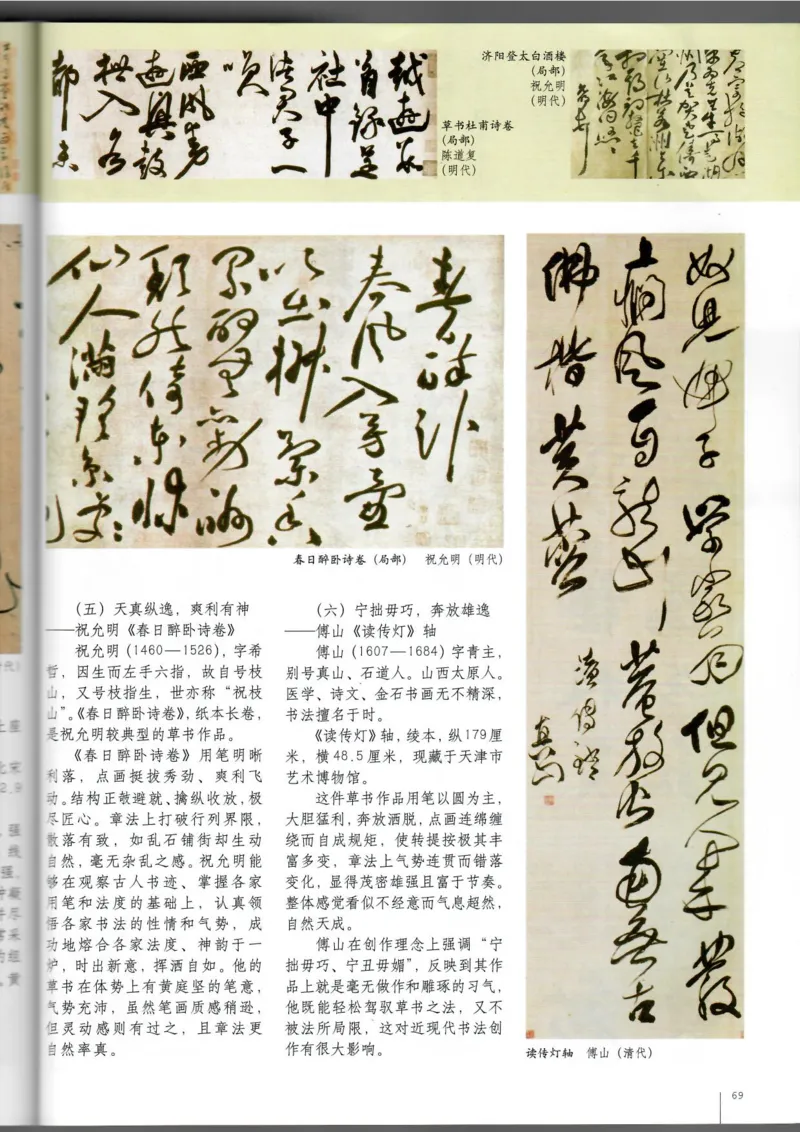 济阳登太白酒楼
（局部）
祝允明
（明代）
草书杜甫诗卷
（局部）
陈道复
（明代）
春醉卧
春风入芳壶
吹出椒兰香
累酌无劝酬
颓然倚东床
仙人满瑶京处
春日醉卧诗卷（局部） 祝允明（明代）
（五）天真纵逸，爽利有神
——祝允明《春日醉卧诗卷》
祝允明（1460—1526），字希
哲，因生而左手六指，故自号枝
山，又号枝指生，世亦称“祝枝
山”。《春日醉卧诗卷》，纸本长卷，
是祝允明较典型的草书作品。
《春日醉卧诗卷》用笔明晰
利落，点画挺拔秀劲、爽利飞
动。结构正欹避就、擒纵收放，极
尽匠心。章法上打破行列界限，
散落有致，如乱石铺街却生动
自然，毫无杂乱之感。祝允明能
够在观察古人书迹、掌握各家
用笔和法度的基础上，认真领
悟各家书法的性情和气势，成
功地熔合各家法度、神韵于一
炉，时出新意，挥洒自如。他的
草书在体势上有黄庭坚的笔意，
气势充沛，虽然笔画质感稍逊，
但灵动感则有过之，且章法更
自然率真。
（六）宁拙毋巧，奔放雄逸
——傅山《读传灯》轴
傅山（1607—1684）字青主，
别号真山、石道人。山西太原人。
医学、诗文、金石书画无不精深，
书法擅名于时。
《读传灯》轴，绫本，纵179厘
米，横48.5厘米，现藏于天津市
艺术博物馆。
这件草书作品用笔以圆为主，
大胆猛利，奔放洒脱，点画连绵缠
绕而自成规矩，使转提按极其丰
富多变，章法上气势连贯而错落
变化，显得茂密雄强且富于节奏。
整体感觉看似不经意而气息超然，
自然天成。
傅山在创作理念上强调“宁
拙毋巧、宁丑毋媚”，反映到其作
品上就是毫无做作和雕琢的习气，
他既能轻松驾驭草书之法，又不
被法所局限，这对近现代书法创
作有很大影响。
读传灯轴 傅山（清代）
69